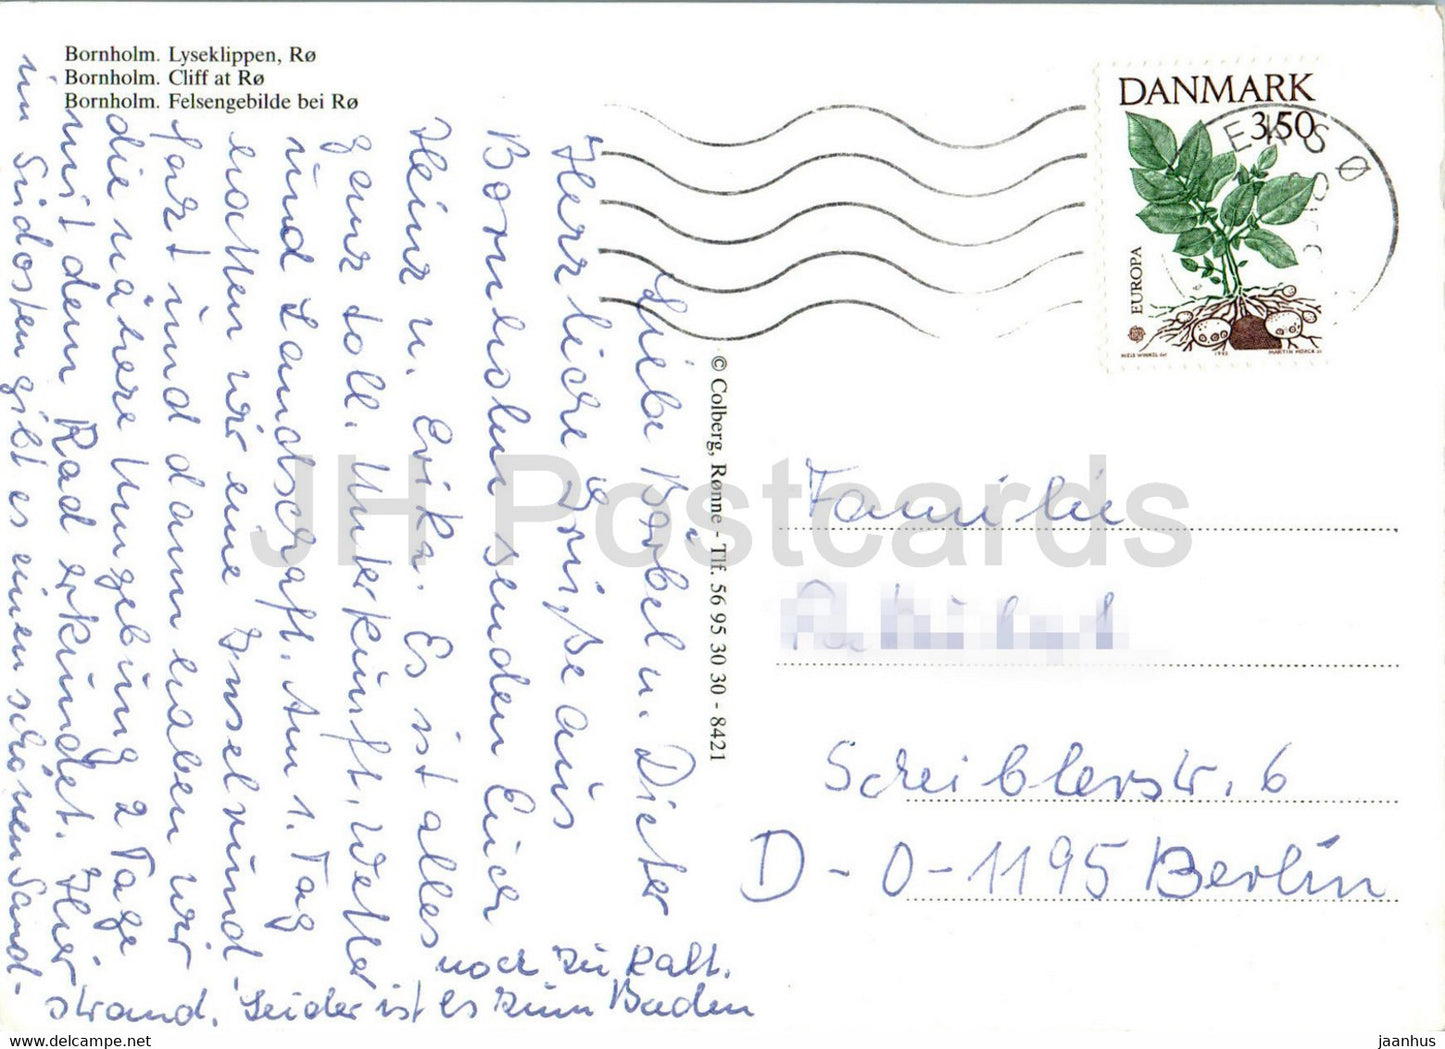 Bornholm. Lyseklippen, Rø
Bornholm. Cliff at Rø
Bornholm. Felsengebilde bei Rø
Liebe Bärbel u. Dieter
Herzliche Grüße aus
Bornholm senden Euch
Heinz u. Erika. Es ist alles
ganz toll. Unterkunft, Wetter
und Landschaft. Am 1. Tag
hatten wir eine Inselrund-
fahrt und dann haben wir
die nähere Umgebung 2 Tage
mit dem Rad erkundet. Hier
im Südosten gibt es einen schönen Sand-
strand. Leider ist es zum Baden
noch zu kalt.
© Colberg, Rønne - Tlf. 56 95 30 30 - 8421
DANMARK
3.50
EUROPA
NIELS WINKEL del
1992
MARTIN MÖRCK sc
NEKSØ
Familie
Scheiblerstr. 6
D-O-1195 Berlin
JH Postcards
www.delcampe.net
jaanhus